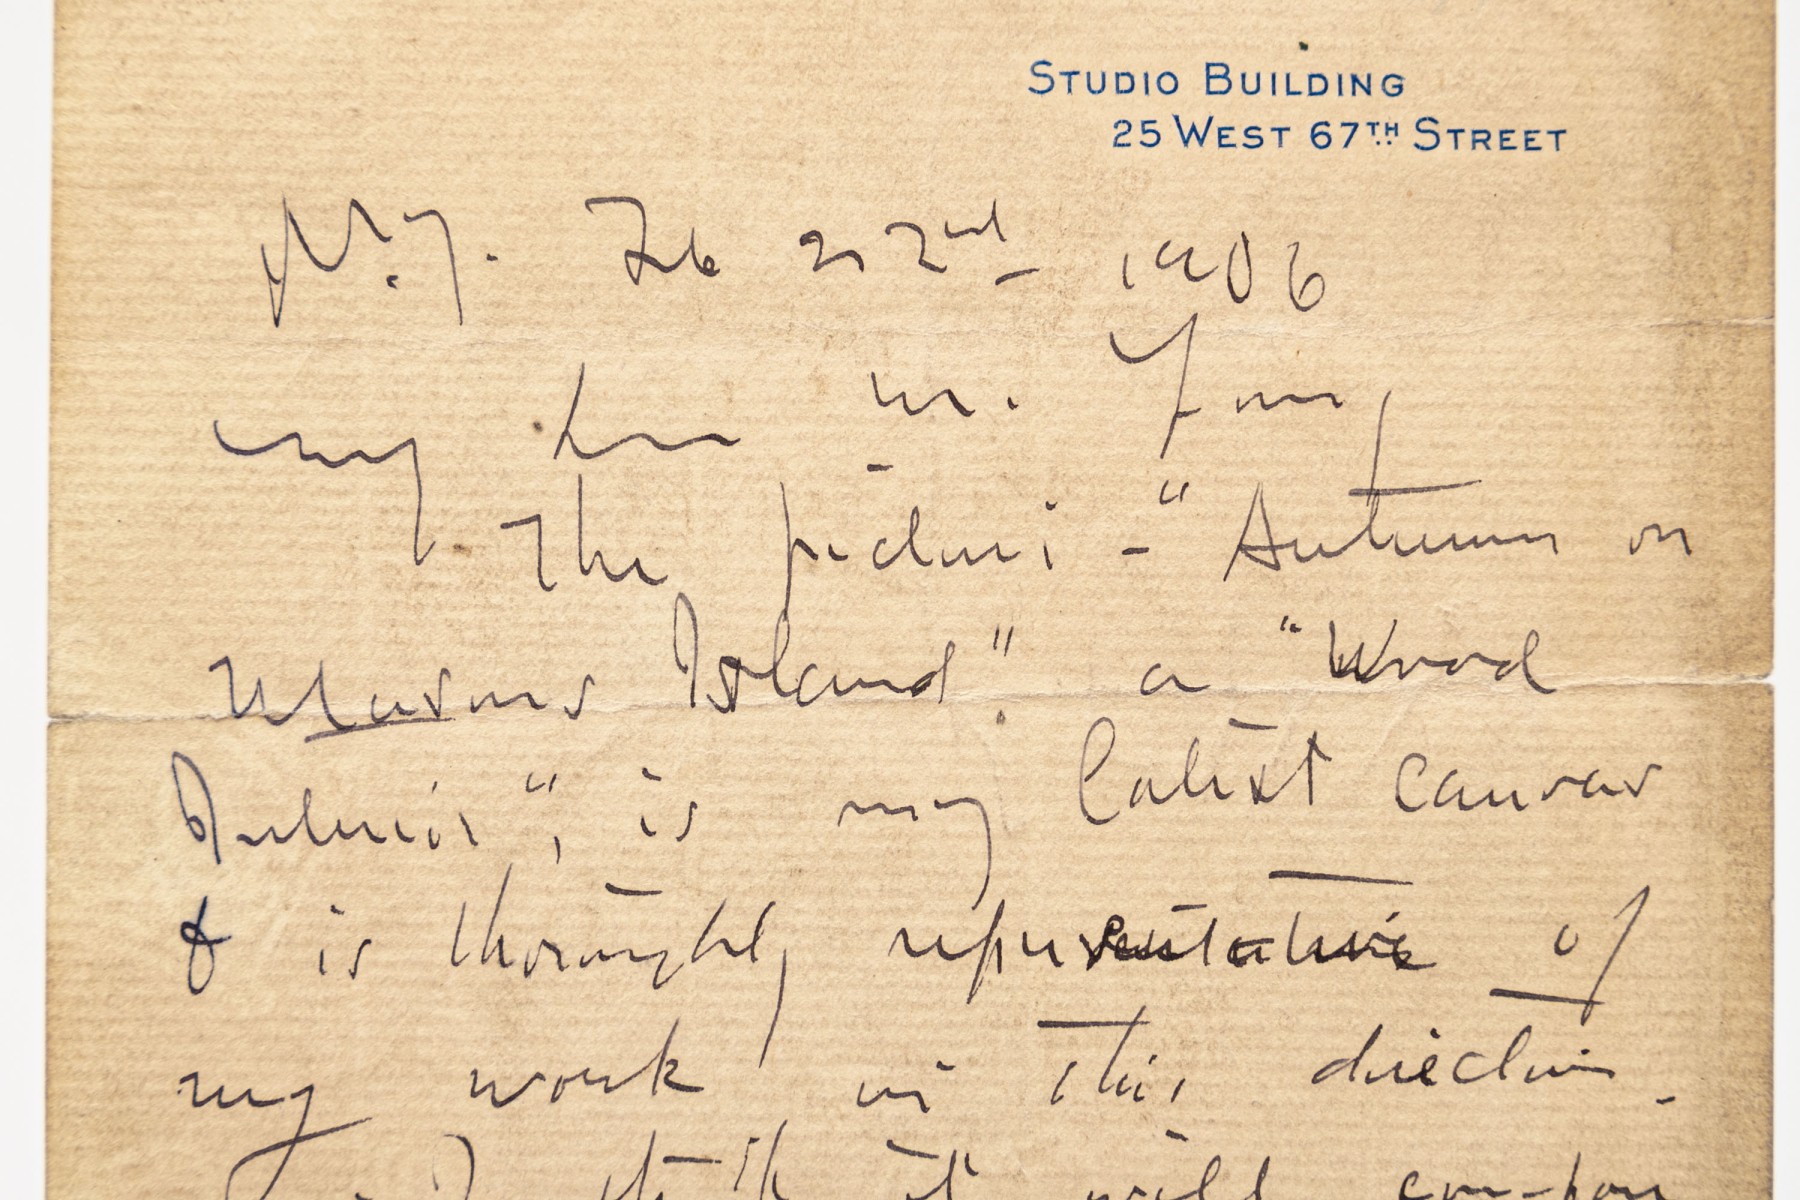 STUDIO BUILDING
25 WEST 67TH STREET
N.Y. Feb 22nd 1906
My dear Mr.
The picture - "Autumn on
Masons Island". a "Wood
Interior", is my latest canvas
& is thoroughly representative of
my work in this direction.
I think it will